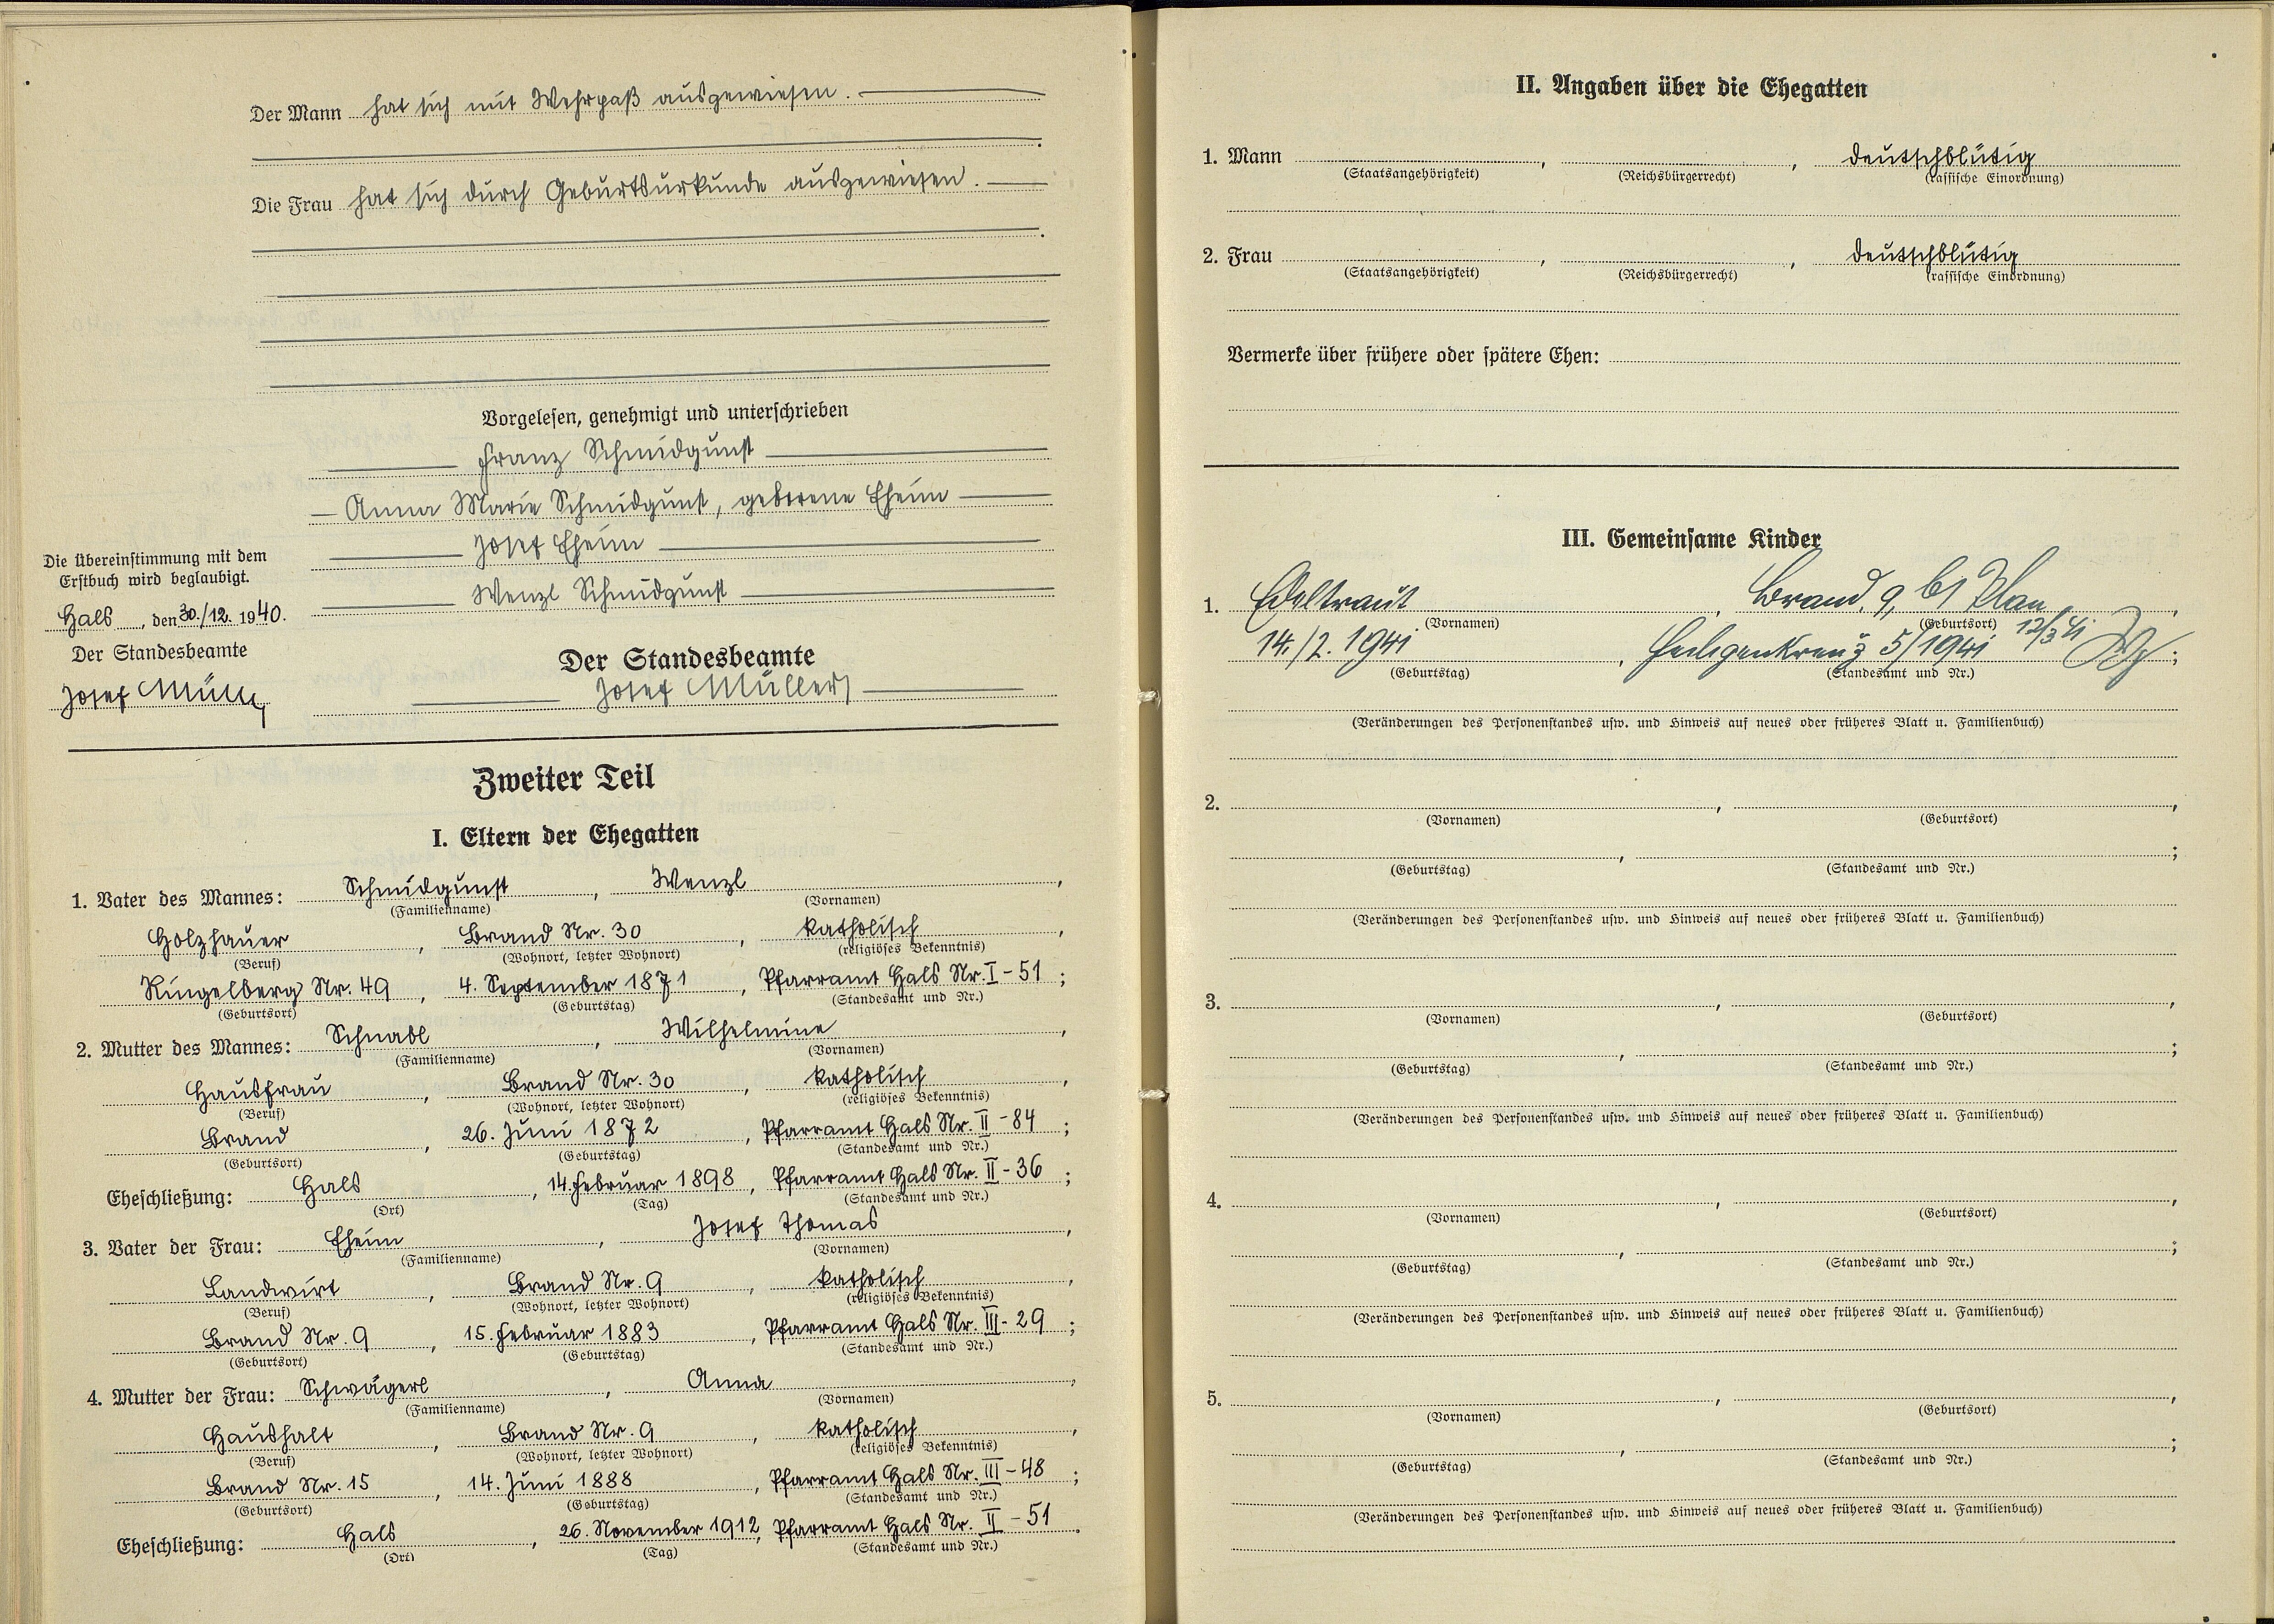 Der Mann hat sich mit Wehrpaß ausgewiesen.
Die Frau hat sich durch Geburtsurkunde ausgewiesen.
Vorgelesen, genehmigt und unterschrieben
Franz Schmidgunst
Anna Marie Schmidgunst, geborene Eheim
Josef Eheim
Wenzl Schmidgunst
Die Übereinstimmung mit dem
Erstbuch wird beglaubigt.
Hals, den 30./12. 1940.
Der Standesbeamte
Josef Müller
Der Standesbeamte
Josef Müller
Zweiter Teil
I. Eltern der Ehegatten
1. Vater des Mannes: Schmidgunst, Wenzl,
(Familienname) (Vornamen)
Holzhauer, Brand Nr. 30, katholisch,
(Beruf) (Wohnort, letzter Wohnort) (religiöses Bekenntnis)
Ringelberg Nr. 49, 4. September 1871, Pfarramt Hals Nr. I-51;
(Geburtsort) (Geburtstag) (Standesamt und Nr.)
2. Mutter des Mannes: Schnabl, Wilhelmine,
(Familienname) (Vornamen)
Hausfrau, Brand Nr. 30, katholisch,
(Beruf) (Wohnort, letzter Wohnort) (religiöses Bekenntnis)
Brand, 26. Juni 1872, Pfarramt Hals Nr. II-84;
(Geburtsort) (Geburtstag) (Standesamt und Nr.)
Eheschließung: Hals, 14. Februar 1898, Pfarramt Hals Nr. II-36;
(Ort) (Tag) (Standesamt und Nr.)
3. Vater der Frau: Eheim, Josef Thomas,
(Familienname) (Vornamen)
Landwirt, Brand Nr. 9, katholisch,
(Beruf) (Wohnort, letzter Wohnort) (religiöses Bekenntnis)
Brand Nr. 9, 15. Februar 1883, Pfarramt Hals Nr. III-29;
(Geburtsort) (Geburtstag) (Standesamt und Nr.)
4. Mutter der Frau: Schwägerl, Anna,
(Familienname) (Vornamen)
Haushalt, Brand Nr. 9, katholisch,
(Beruf) (Wohnort, letzter Wohnort) (religiöses Bekenntnis)
Brand Nr. 15, 14. Juni 1888, Pfarramt Hals Nr. III-48;
(Geburtsort) (Geburtstag) (Standesamt und Nr.)
Eheschließung: Hals, 26. November 1912, Pfarramt Hals Nr. II-51.
(Ort) (Tag) (Standesamt und Nr.)
II. Angaben über die Ehegatten
1. Mann , , deutschblütig
(Staatsangehörigkeit) (Reichsbürgerrecht) (rassische Einordnung)
2. Frau , , deutschblütig
(Staatsangehörigkeit) (Reichsbürgerrecht) (rassische Einordnung)
Vermerke über frühere oder spätere Ehen:
III. Gemeinsame Kinder
1. Edeltraut, Brand, 9, bz Plan,
(Vornamen) (Geburtsort)
14./2. 1941, Heiligenkreuz 5/1941 12/3 41;
(Geburtstag) (Standesamt und Nr.)
(Veränderungen des Personenstandes usw. und Hinweis auf neues oder früheres Blatt u. Familienbuch)
2. , ,
(Vornamen) (Geburtsort)
, ;
(Geburtstag) (Standesamt und Nr.)
(Veränderungen des Personenstandes usw. und Hinweis auf neues oder früheres Blatt u. Familienbuch)
3. , ,
(Vornamen) (Geburtsort)
, ;
(Geburtstag) (Standesamt und Nr.)
(Veränderungen des Personenstandes usw. und Hinweis auf neues oder früheres Blatt u. Familienbuch)
4. , ,
(Vornamen) (Geburtsort)
, ;
(Geburtstag) (Standesamt und Nr.)
(Veränderungen des Personenstandes usw. und Hinweis auf neues oder früheres Blatt u. Familienbuch)
5. , ,
(Vornamen) (Geburtsort)
, ;
(Geburtstag) (Standesamt und Nr.)
(Veränderungen des Personenstandes usw. und Hinweis auf neues oder früheres Blatt u. Familienbuch)